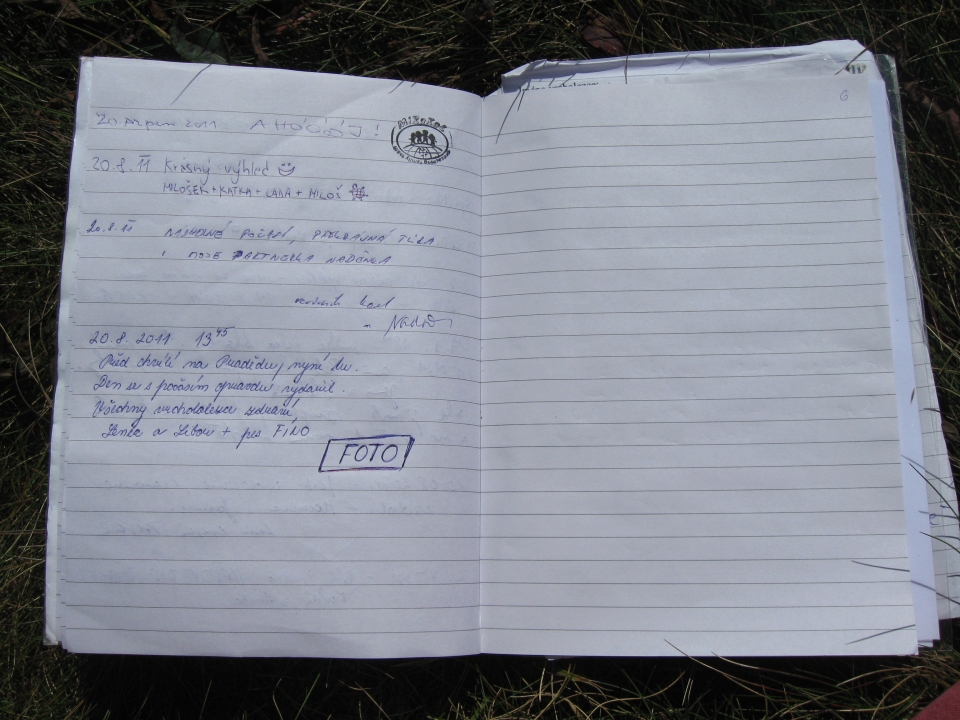 20. srpen 2011 AHÓÓÓJ!
20.8.11 Krásný výhled
MILOŠEK + KATKA + LÁĎA + MILOŠ
20.8.11 NÁDHERNÉ POČASÍ, TÚRA
MOJE PARTNERKA NADĚNKA
20.8.2011 13 45
Před chvílí na Pradědu, nyní tu.
Den se s počasím opravdu vydařil.
Všechny vrchololezce zdraví
Lenka a Libor + pes FÍNO
FOTO
6